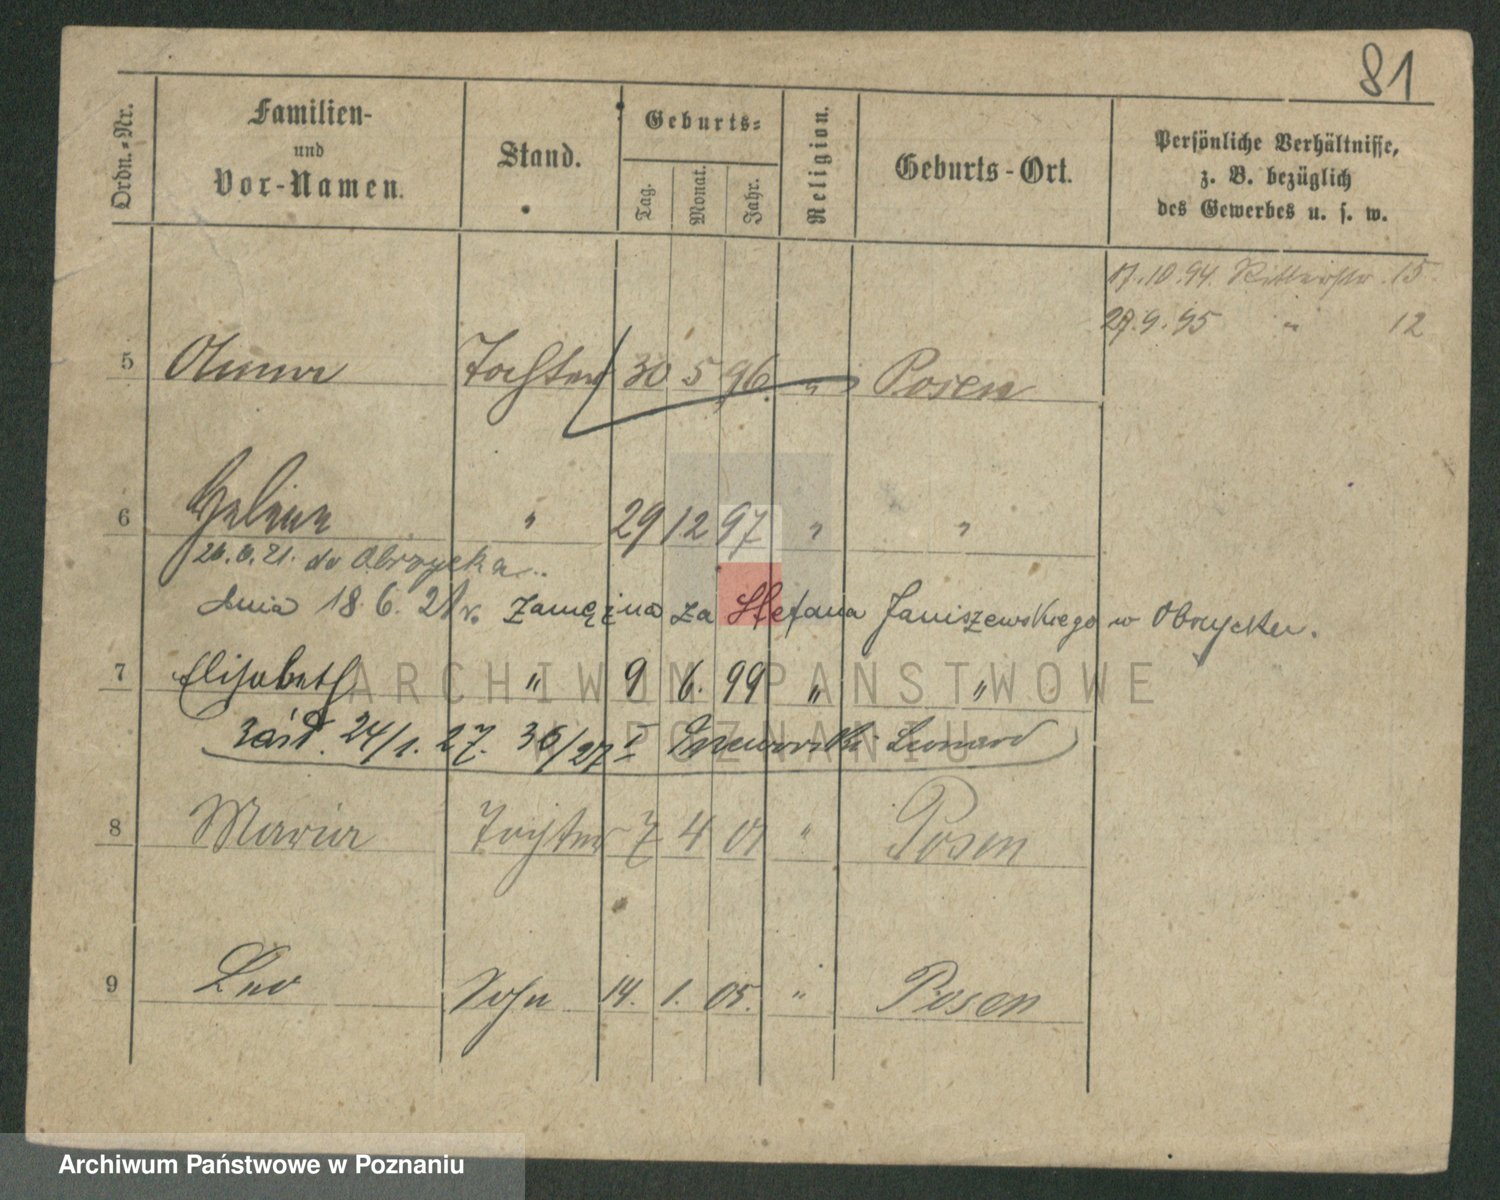 81
Ordn.-Nr.
Familien-
und
Vor-Namen.
Stand.
Geburts-
Tag.
Monat.
Jahr.
Religion.
Geburts-Ort.
Persönliche Verhältnisse,
z. B. bezüglich
des Gewerbes u. s. w.
17.10.94. Ritterstr. 15
27.9.95 " 12
5 Tochter 30 5 96. " Posen
6 Helene " 29 12 97 " "
do Obrzycka
dnia 18.6.21 r. zamężna za Stefana Janiszewskiego w Obrzycku.
7 Elisabeth " 9 6. 99 " "
24/1. 27. 36/27 I Leonard
8 Maria Tochter 7 4 01 " Posen
9 Leo Sohn 14. 1. 05. " Posen
ARCHIWUM PAŃSTWOWE
W POZNANIU
Archiwum Państwowe w Poznaniu